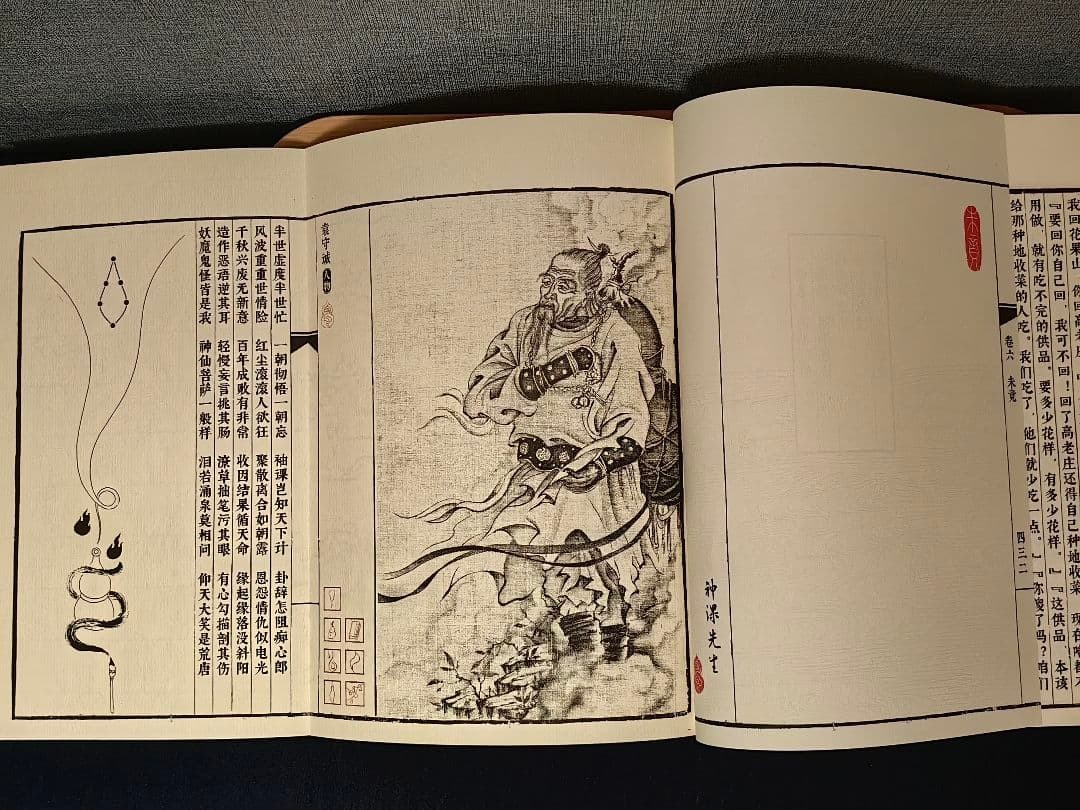 我回花果山，你回高老庄。』
『要回你自己回，我可不回！回了高老庄还得自己种地收菜，现在啥都不
用做，就有吃不完的供品。要多少花样，有多少花样。』『这供品，本该
给那种地收菜的人吃。我们吃了，他们就少吃一点。』『你傻了吗？咱们
卷六 未竟 四三二
神课先生
袁守诚 人物
半世虚度半世忙 一朝彻悟一朝忘 袖课岂知天下计 卦辞怎阻痴心郎
风波重重世情险 红尘滚滚人欲狂 聚散离合如朝露 恩怨情仇似电光
千秋兴废无新意 百年成败有非常 收因结果循天命 缘起缘落没斜阳
造作恶语逆其耳 轻慢妄言挑其肠 潦草抽笔污其眼 有心勾描剖其伤
妖魔鬼怪皆是我 神仙菩萨一般样 泪若涌泉莫相问 仰天大笑是荒唐